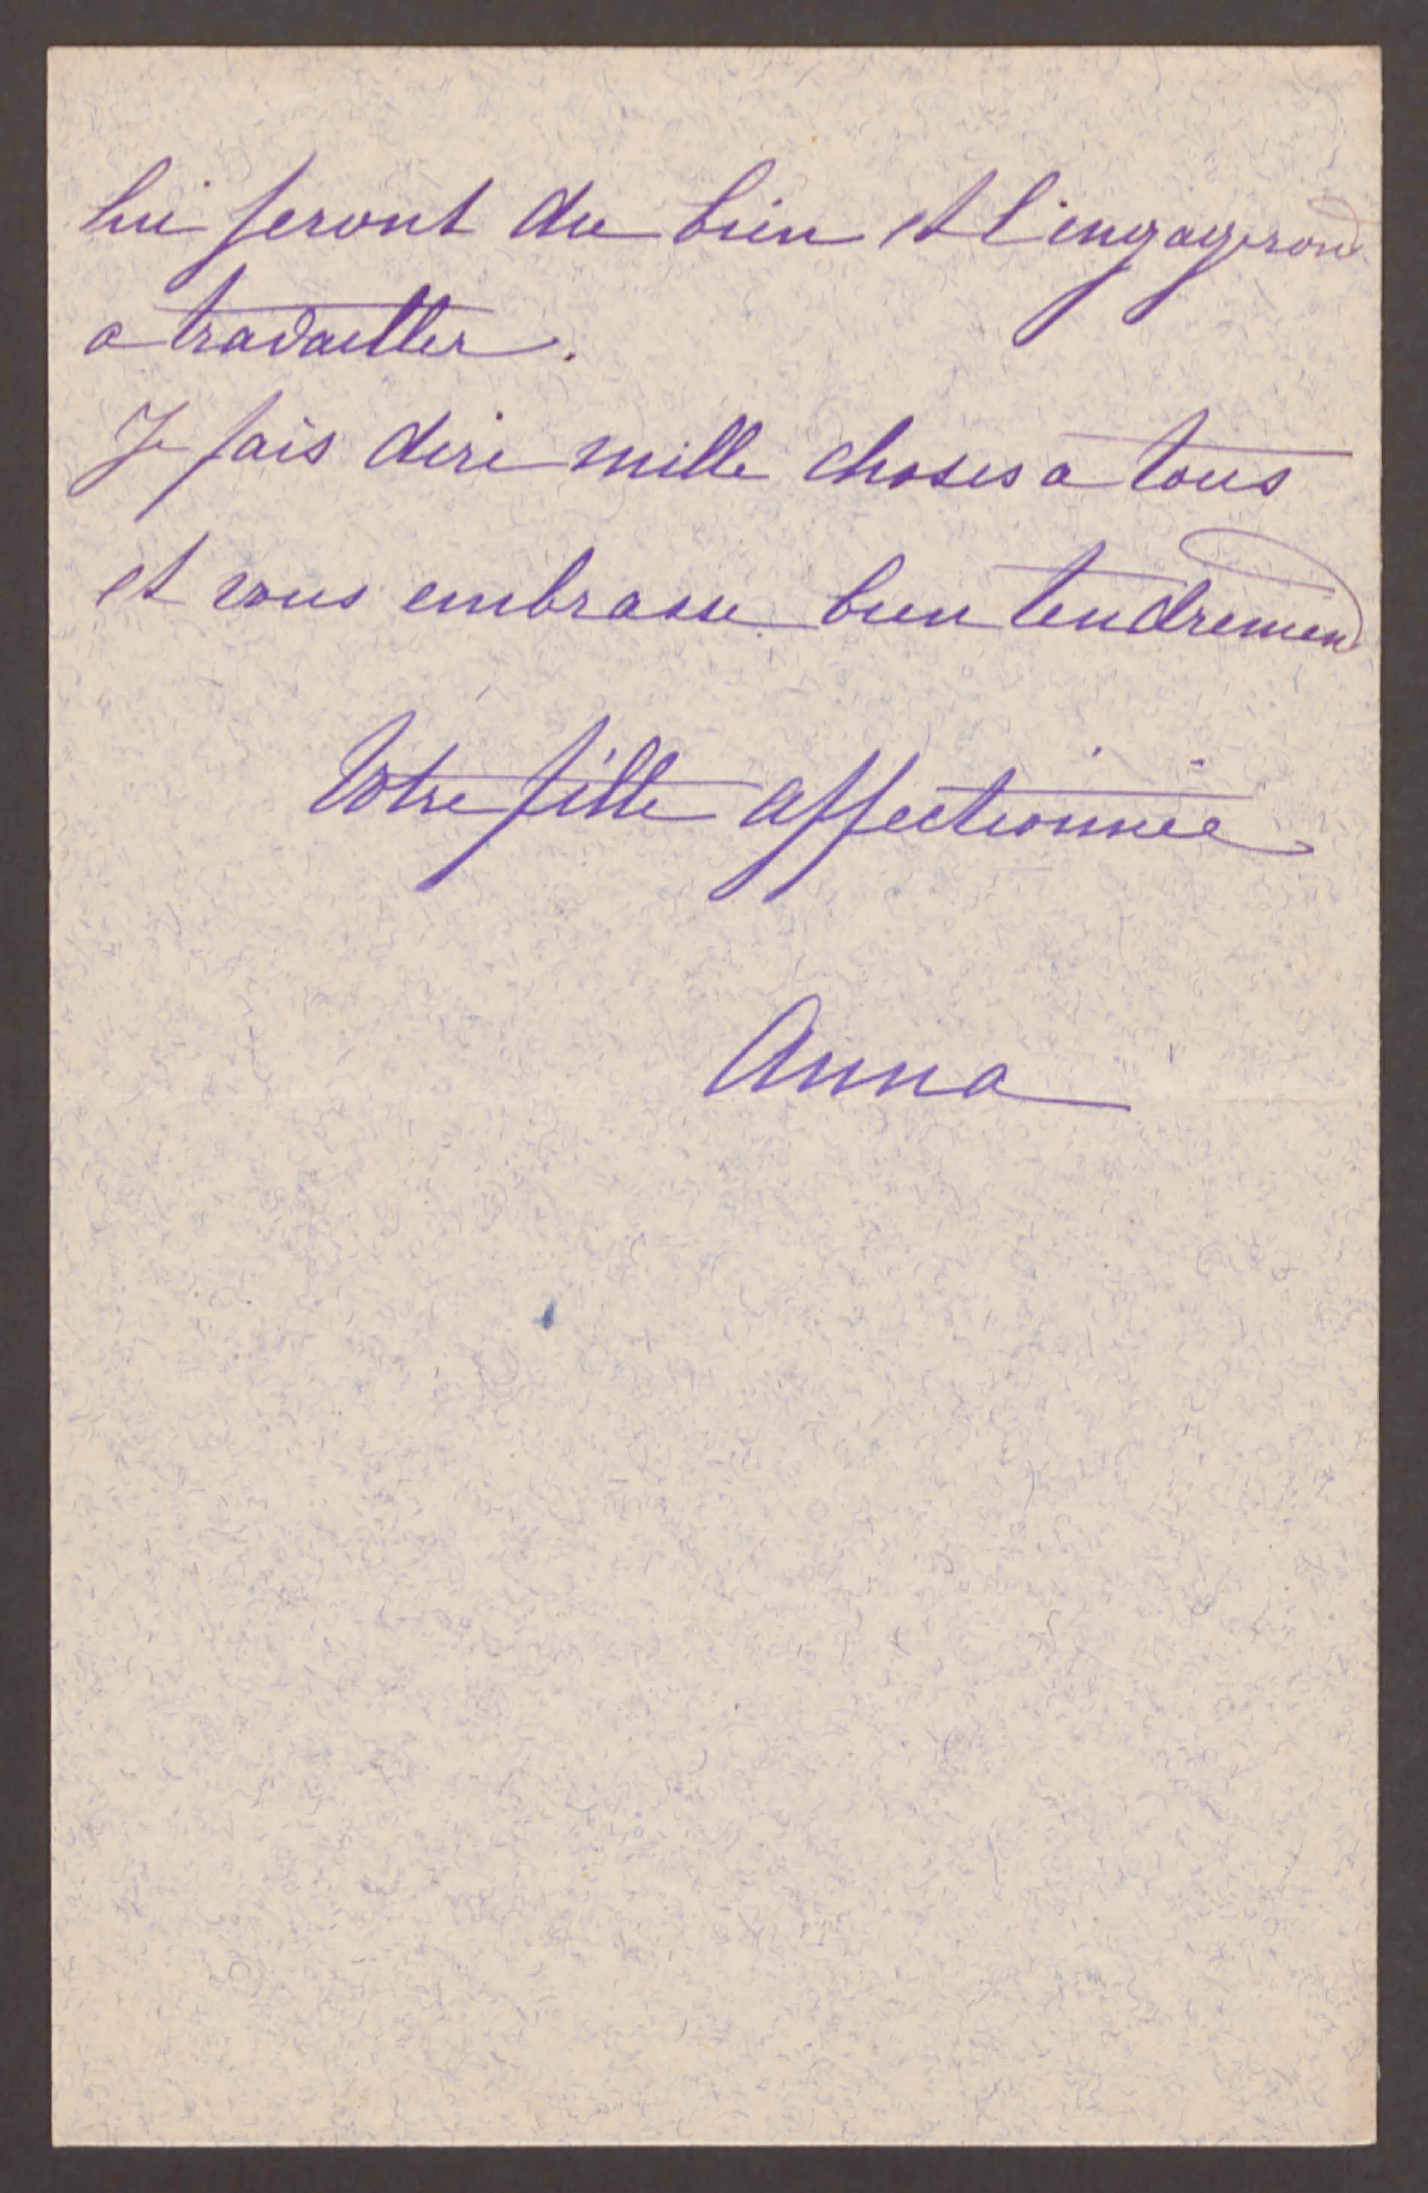 lui feront du bien et l'engageront
a travailler.
Je fais dire mille choses a tous
et vous embrasse bien tendrement
Votre fille affectionnée
Anna